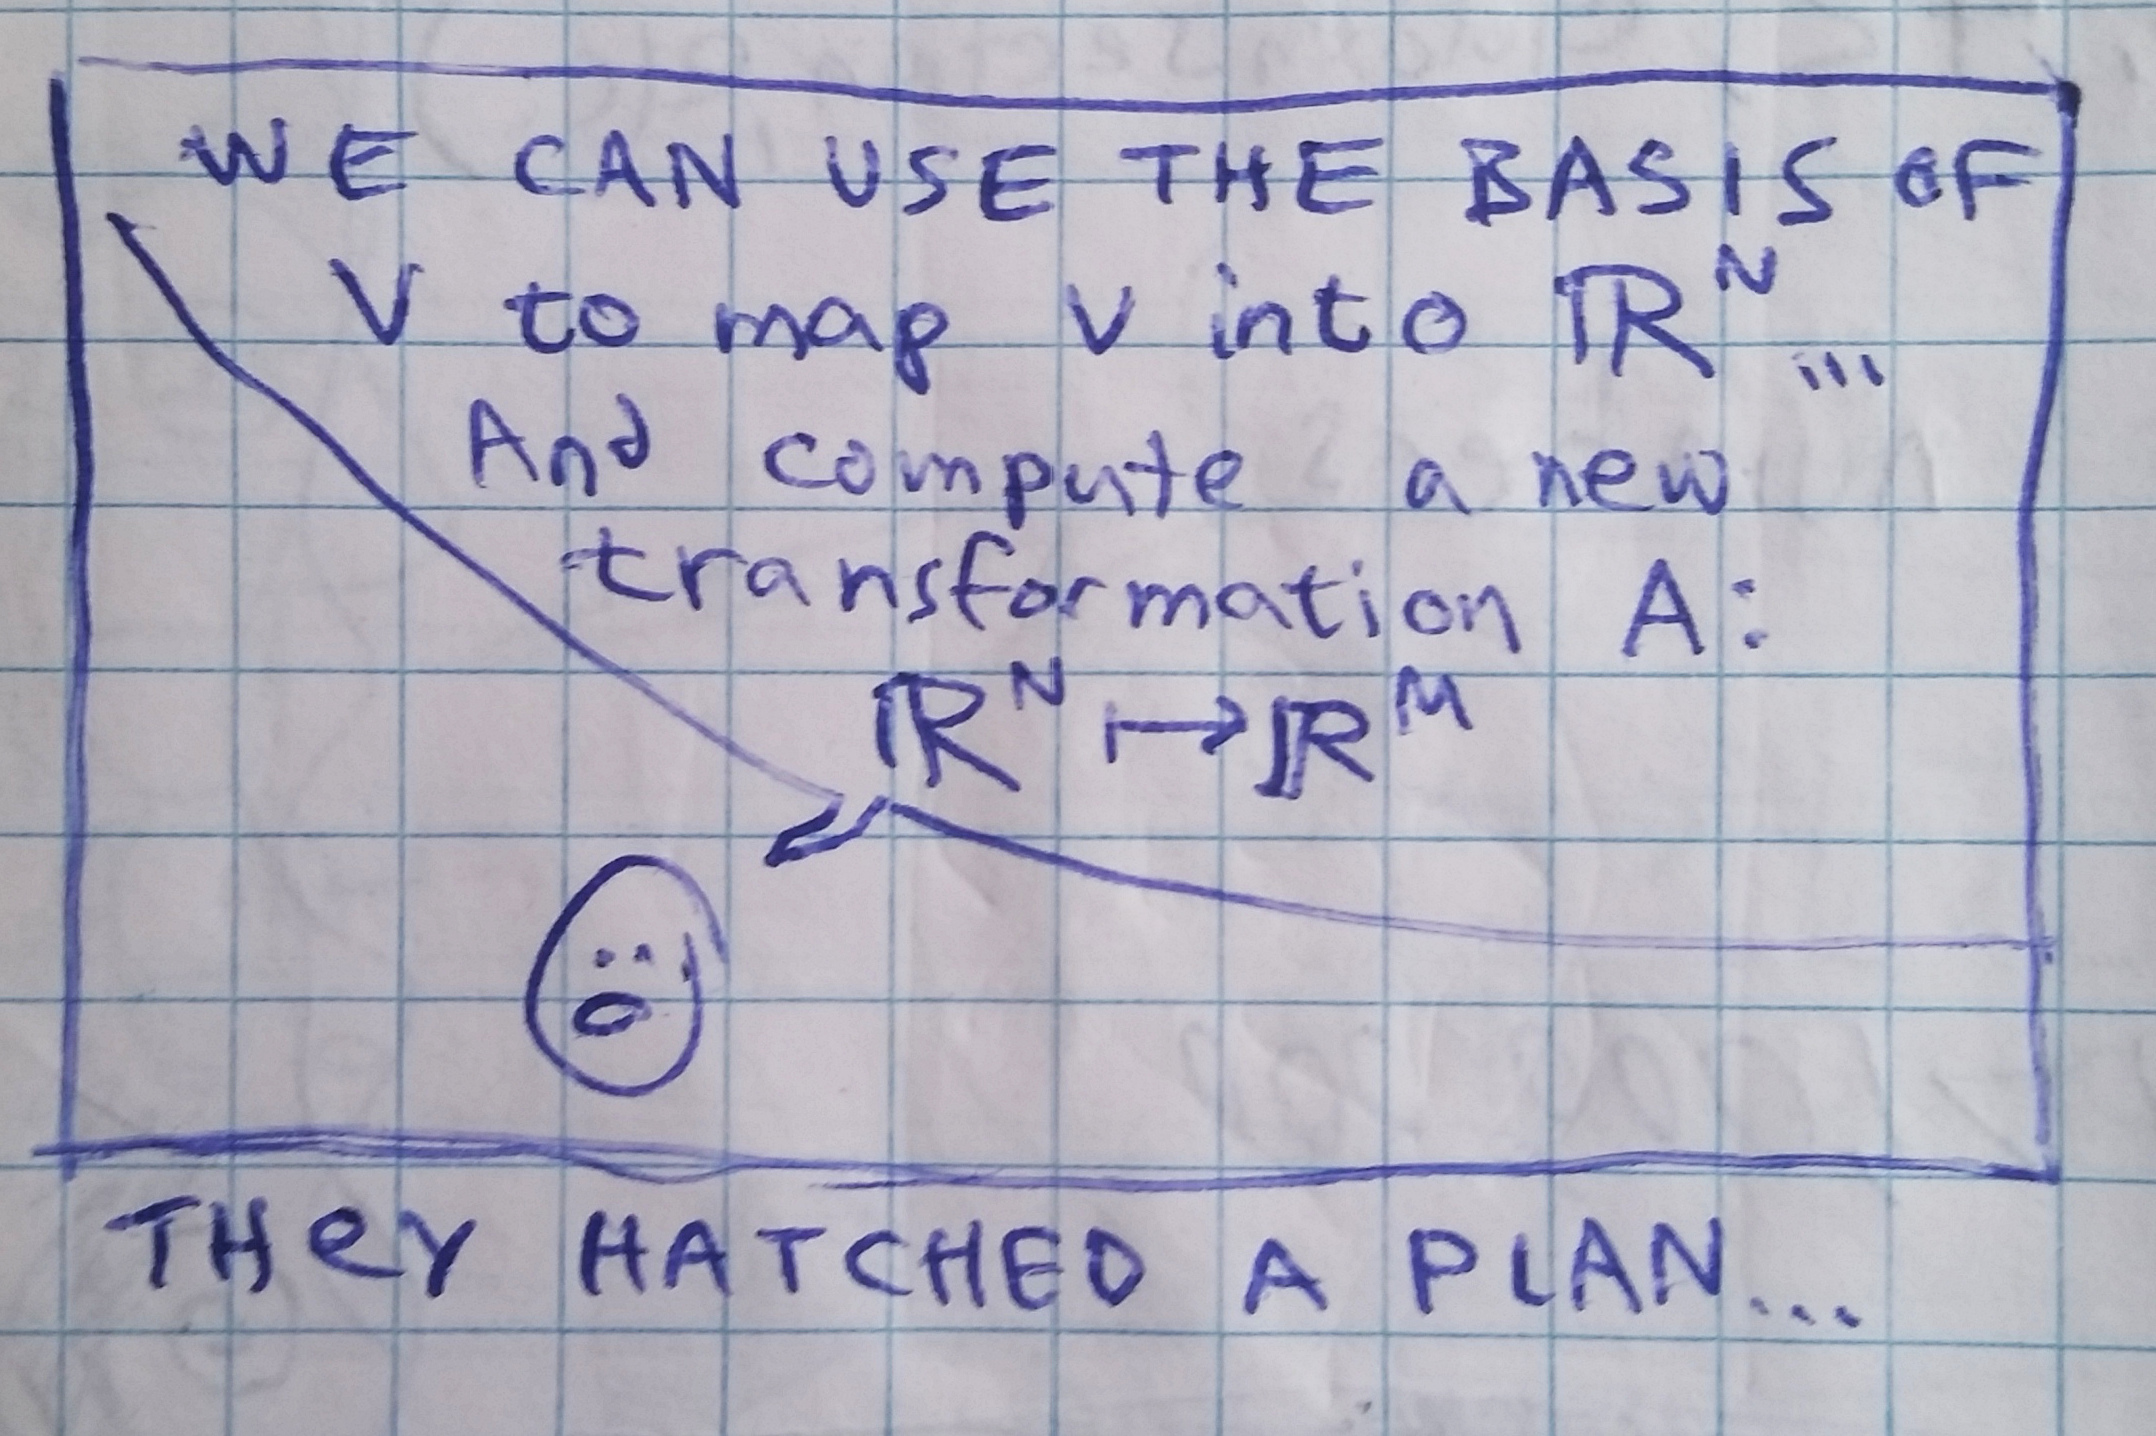 WE CAN USE THE BASIS OF
V to map v into ℝᴺ...
And compute a new
transformation A:
ℝᴺ ↦ ℝᴹ
THeY HATCHED A PLAN...